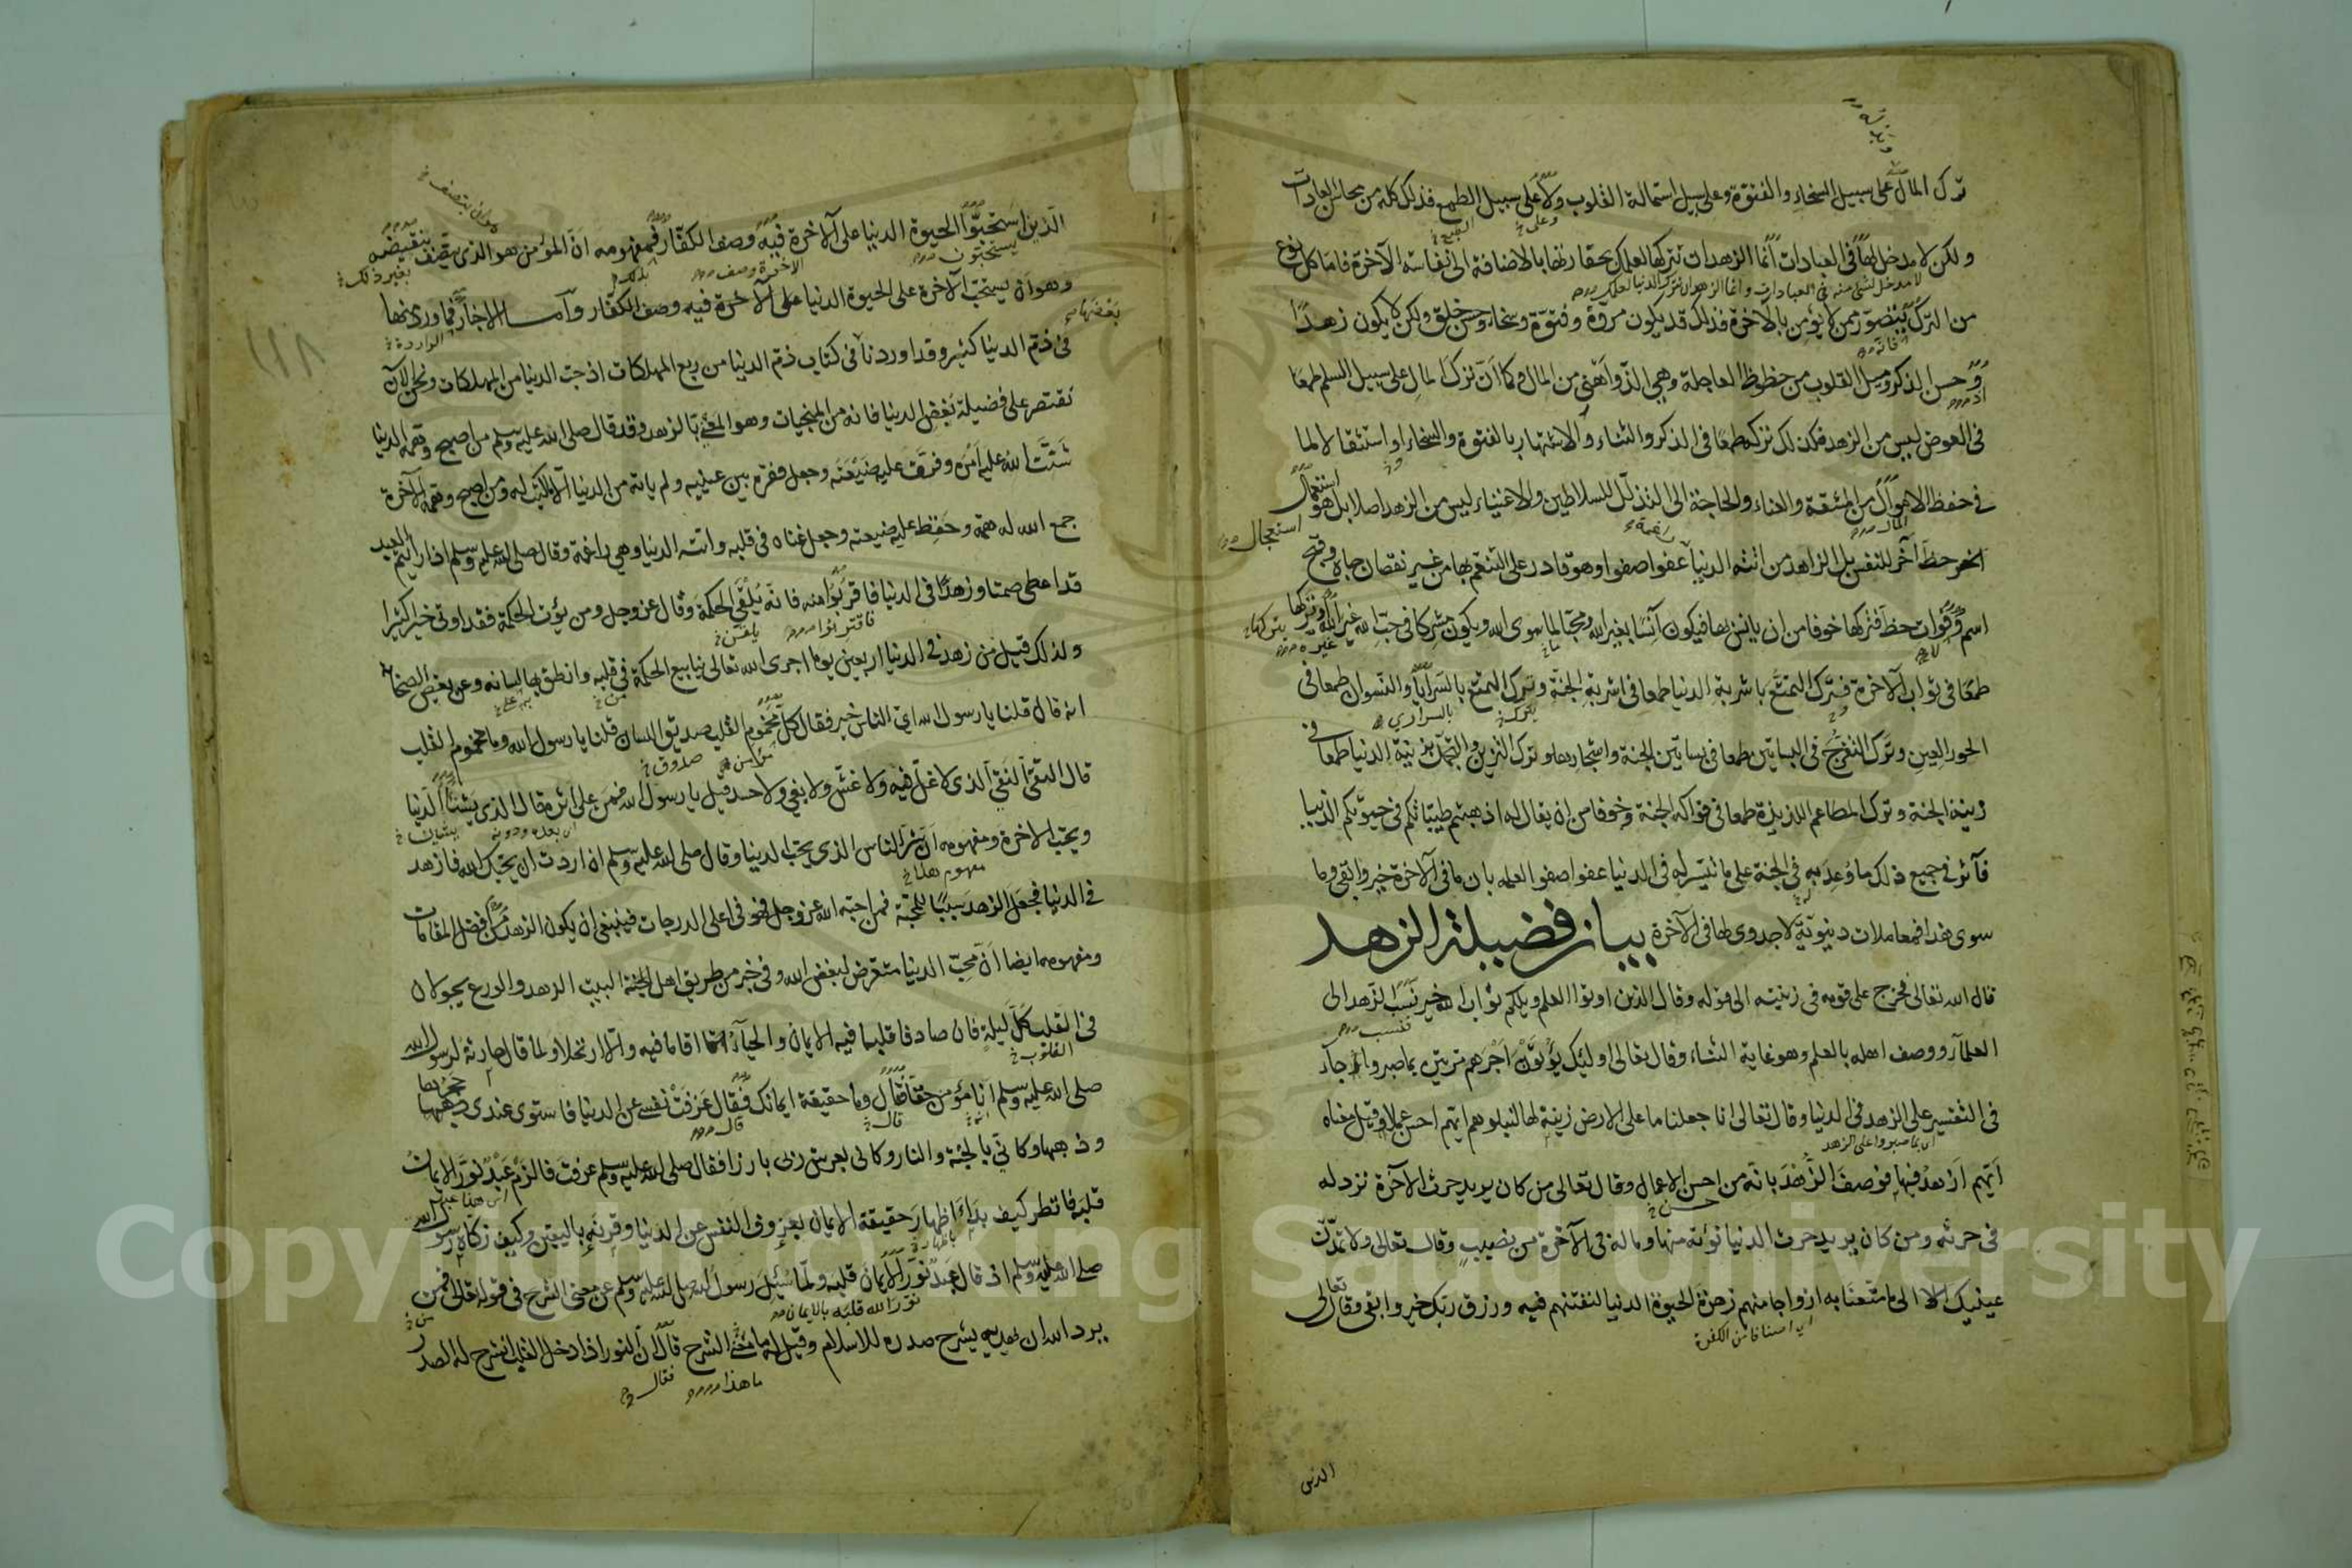 ترك المال على سبيل السخاء والفتوة وعلى سبيل استمالة القلوب ولا على سبيل الطمع فذلك كله من محاسن العادات
ولكن لا مدخل لها في العبادات انما الزهد ان تترك الدنيا لعلمك بحقارتها بالاضافة الى نفاسة الآخرة فاما كل نوع
من الترك يتصور ممن لا يؤمن بالآخرة فذلك قد يكون مروة وفتوة وسخاء وحسن خلق ولكن لا يكون زهدا
وحسن الذكر وميل القلوب من حظوظ العاجلة وهي الذ واهنى من المال وكما ان ترك المال على سبيل السلم طمعا
في العوض ليس من الزهد فكذلك تركه طمعا في الذكر والثناء والاشتهار بالفتوة والسخاء او استثقالا لما
في حفظ الاموال من المشقة والعناء والحاجة الى التذلل للسلاطين والاغنياء ليس من الزهد اصلا بل هو استعجال
حظ آخر للنفس بل الزاهد من اتته الدنيا عفوا صفوا وهو قادر على التنعم بها من غير نقصان جاه وقبح
اسم وفوات حظ فتركها خوفا من ان يانس بها فيكون آنسا بغير الله ومحبا لما سوى الله ويكون مشركا في حب الله غير الله وتركها
طمعا في ثواب الآخرة فترك التمتع باشربة الدنيا طمعا في اشربة الجنة وترك التمتع بالسرايا والنسوان طمعا في
الحور العين وترك التفرج في البساتين طمعا في بساتين الجنة واشجارها وترك التزين والتجمل بزينة الدنيا طمعا في
زينة الجنة وترك المطاعم اللذيذة طمعا في فواكه الجنة وخوفا من ان يقال له اذهبتم طيباتكم في حيوتكم الدنيا
فآثر في جميع ذلك ما وعد به في الجنة على ما تيسر له في الدنيا عفوا صفوا لعلمه بان ما في الآخرة خير وابقى وما
سوى هذا فمعاملات دنيوية لا جدوى لها في الآخرة بيان فضيلة الزهد
قال الله تعالى فخرج على قومه في زينته الى قوله وقال الذين اوتوا العلم ويلكم ثواب الله خير نسب الزهد الى
العلماء ووصف اهله بالعلم وهو غاية الثناء وقال تعالى اولئك يؤتون اجرهم مرتين بما صبروا جاء
في التفسير على الزهد في الدنيا وقال تعالى انا جعلنا ما على الارض زينة لها لنبلوهم ايهم احسن عملا وقيل معناه
ايهم ازهد فيها فوصف الزهد بانه من احسن الاعمال وقال تعالى من كان يريد حرث الآخرة نزد له
في حرثه ومن كان يريد حرث الدنيا نؤته منها وماله في الآخرة من نصيب وقال تعالى ولا تمدن
عينيك الى ما متعنا به ازواجا منهم زهرة الحيوة الدنيا لنفتنهم فيه ورزق ربك خير وابقى وقال تعالى
الذين
الذين استحبوا الحيوة الدنيا على الآخرة فيه وصف الكفار فمفهومه ان المؤمن هو الذي يتصف بنقيضه
وهو ان يستحب الآخرة على الحيوة الدنيا على الآخرة فيه وصف الكفار واما الاخبار فما ورد منها
في ذم الدنيا كثير وقد اوردنا في كتاب ذم الدنيا من ربع المهلكات اذ حب الدنيا من المهلكات ونحن الآن
نقتصر على فضيلة بغض الدنيا فانه من المنجيات وهو المعني بالزهد وقد قال صلى الله عليه وسلم من اصبح وهمه الدنيا
شتت الله عليه امره وفرق عليه ضيعته وجعل فقره بين عينيه ولم ياته من الدنيا الا ما كتب له ومن اصبح وهمه الآخرة
جمع الله له همه وحفظ عليه ضيعته وجعل غناه في قلبه واتته الدنيا وهي راغمة وقال صلى الله عليه وسلم اذا رايتم العبد
قد اعطى صمتا وزهدا في الدنيا فاقربوا منه فانه يلقى الحكمة وقال عز وجل ومن يؤت الحكمة فقد اوتي خيرا كثيرا
ولذلك قيل من زهد في الدنيا اربعين يوما اجرى الله تعالى ينابيع الحكمة في قلبه وانطق بها لسانه وعن بعض الصحابة
انه قال قلنا يا رسول الله اي الناس خير فقال كل مخموم القلب صديق اللسان قلنا يا رسول الله وما مخموم القلب
قال التقي النقي الذي لا غل فيه ولا غش ولا بغي ولا حسد قيل يا رسول الله فمن على اثره قال الذي يشنأ الدنيا
ويحب الآخرة ومفهومه ان شر الناس الذي يحب الدنيا وقال صلى الله عليه وسلم ان اردت ان يحبك الله فازهد
في الدنيا فجعل الزهد سببا للمحبة فمن احبه الله عز وجل فهو في اعلى الدرجات فينبغي ان يكون الزهد من افضل المقامات
ومفهومه ايضا ان محب الدنيا متعرض لبغض الله وفي خبر من طريق اهل البيت الزهد والورع يجولان
في القلب كل ليلة فان صادفا قلبا فيه الايمان والحياء اقاما فيه والا ارتحلا ولما قال حارثة لرسول الله
صلى الله عليه وسلم انا مؤمن حقا قال وما حقيقة ايمانك فقال عزفت نفسي عن الدنيا فاستوى عندي حجرها
وذهبها وكاني بالجنة والنار وكاني بعرش ربي بارزا فقال صلى الله عليه وسلم عرفت فالزم عبد نور الايمان
قلبه فانظر كيف بدأ اظهار حقيقة الايمان بعزوف النفس عن الدنيا وقرنه باليقين وكيف زكاه رسول الله
صلى الله عليه وسلم اذ قال عبد نور الايمان قلبه ولما سئل رسول الله صلى الله عليه وسلم عن معنى الشرح في قوله تعالى فمن
يرد الله ان يهديه يشرح صدره للاسلام وقيل له ما معنى الشرح قال ان النور اذا دخل القلب انشرح له الصدر
١١٨
Copyright © King Saud University